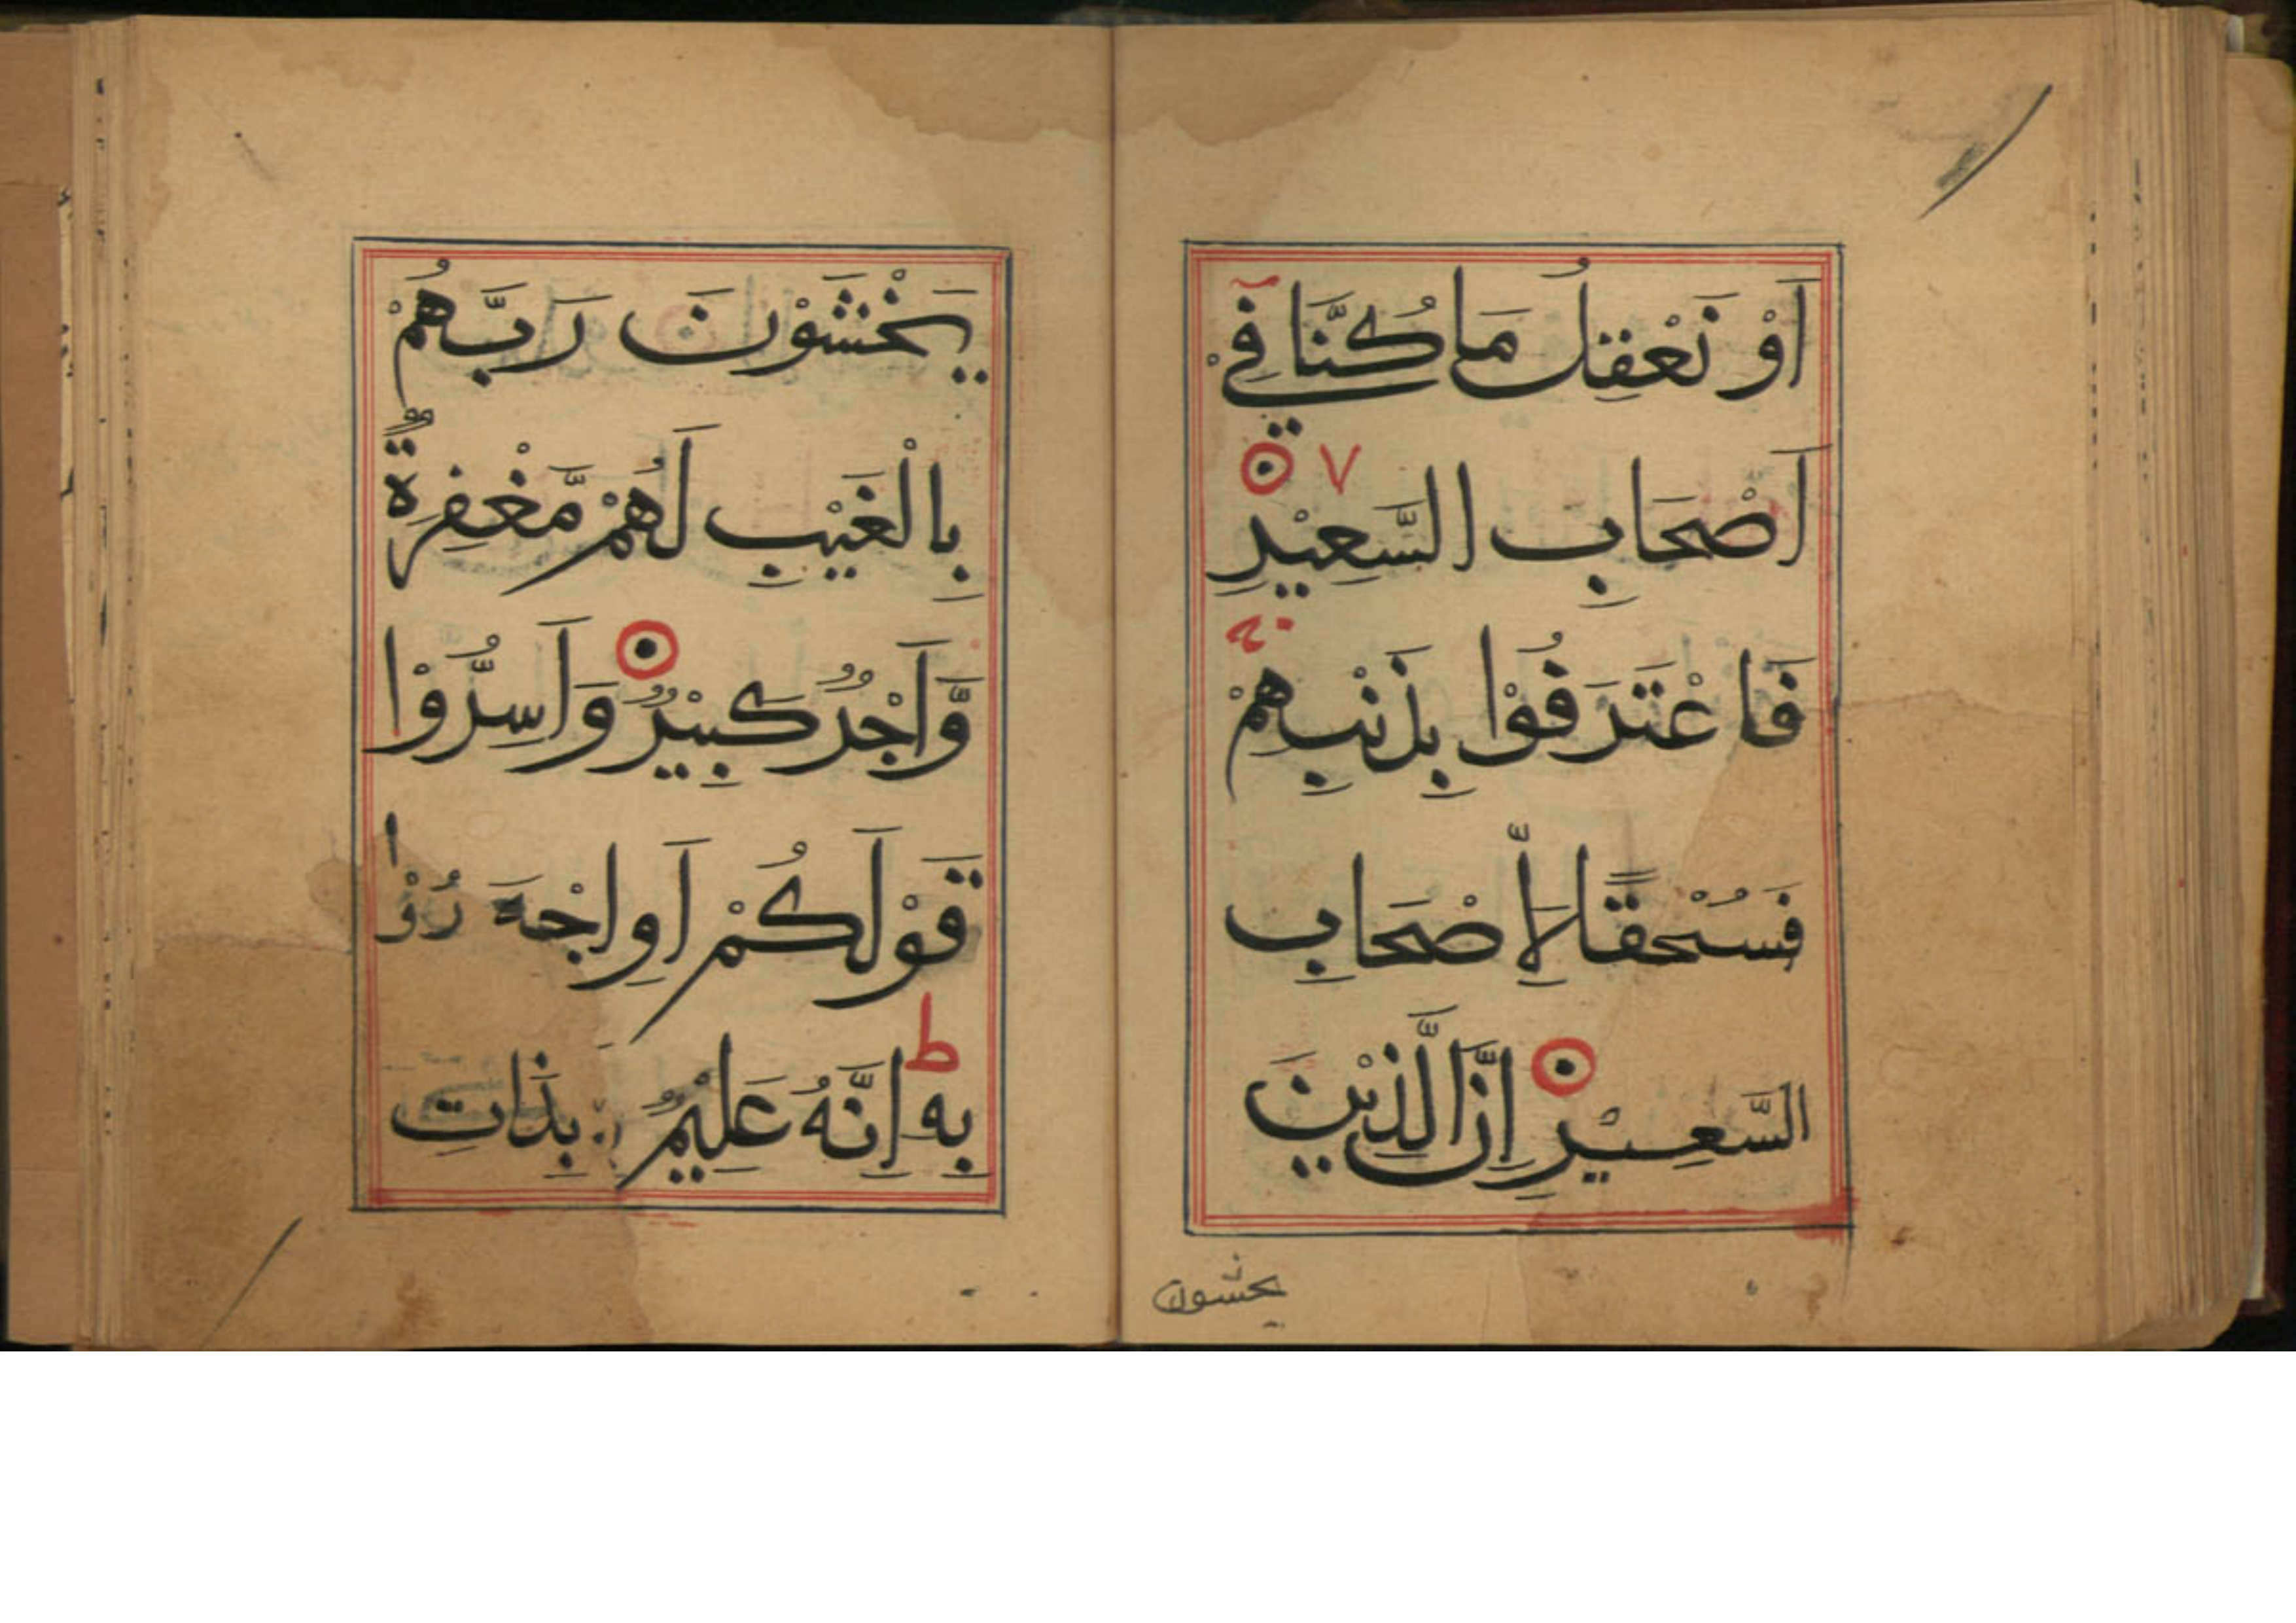 اَوْ نَعْقِلُ مَا كُنَّا فِيْ
اَصْحَابِ السَّعِيْرِ
فَاعْتَرَفُوْا بِذَنْبِهِمْ
فَسُحْقًا لِّأَصْحَابِ
السَّعِيْرِ اِنَّ الَّذِيْنَ
يخشون
يَخْشَوْنَ رَبَّهُمْ
بِالْغَيْبِ لَهُمْ مَّغْفِرَةٌ
وَّاَجْرٌ كَبِيْرٌ وَاَسِرُّوْا
قَوْلَكُمْ اَوِاجْهَرُوْا
ط
بِهٖ اِنَّهُ عَلِيْمٌ بِذَاتِ